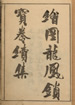 繪圖龍鳳鎖
寶卷續集